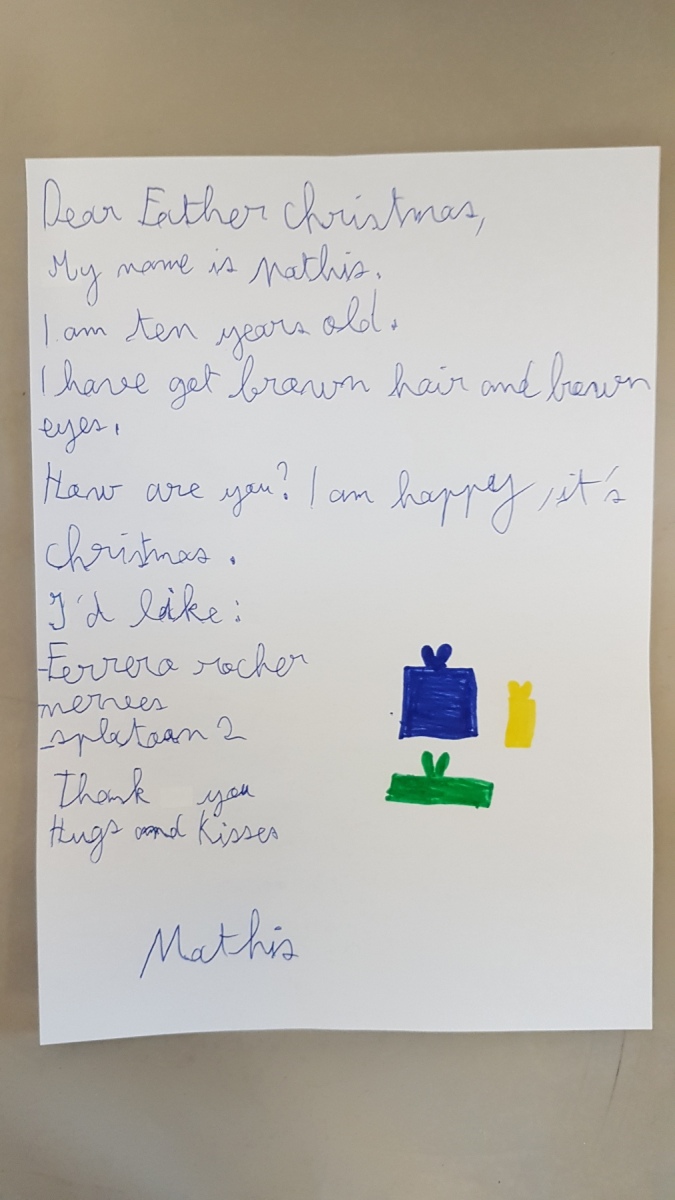 Dear Father Christmas,
My name is Mathis.
I am ten years old.
I have got brown hair and brown
eyes.
How are you? I am happy, it's
christmas.
I'd like:
-Ferrero rocher
-splatoon 2
Thank you
Hugs and Kisses
Mathis